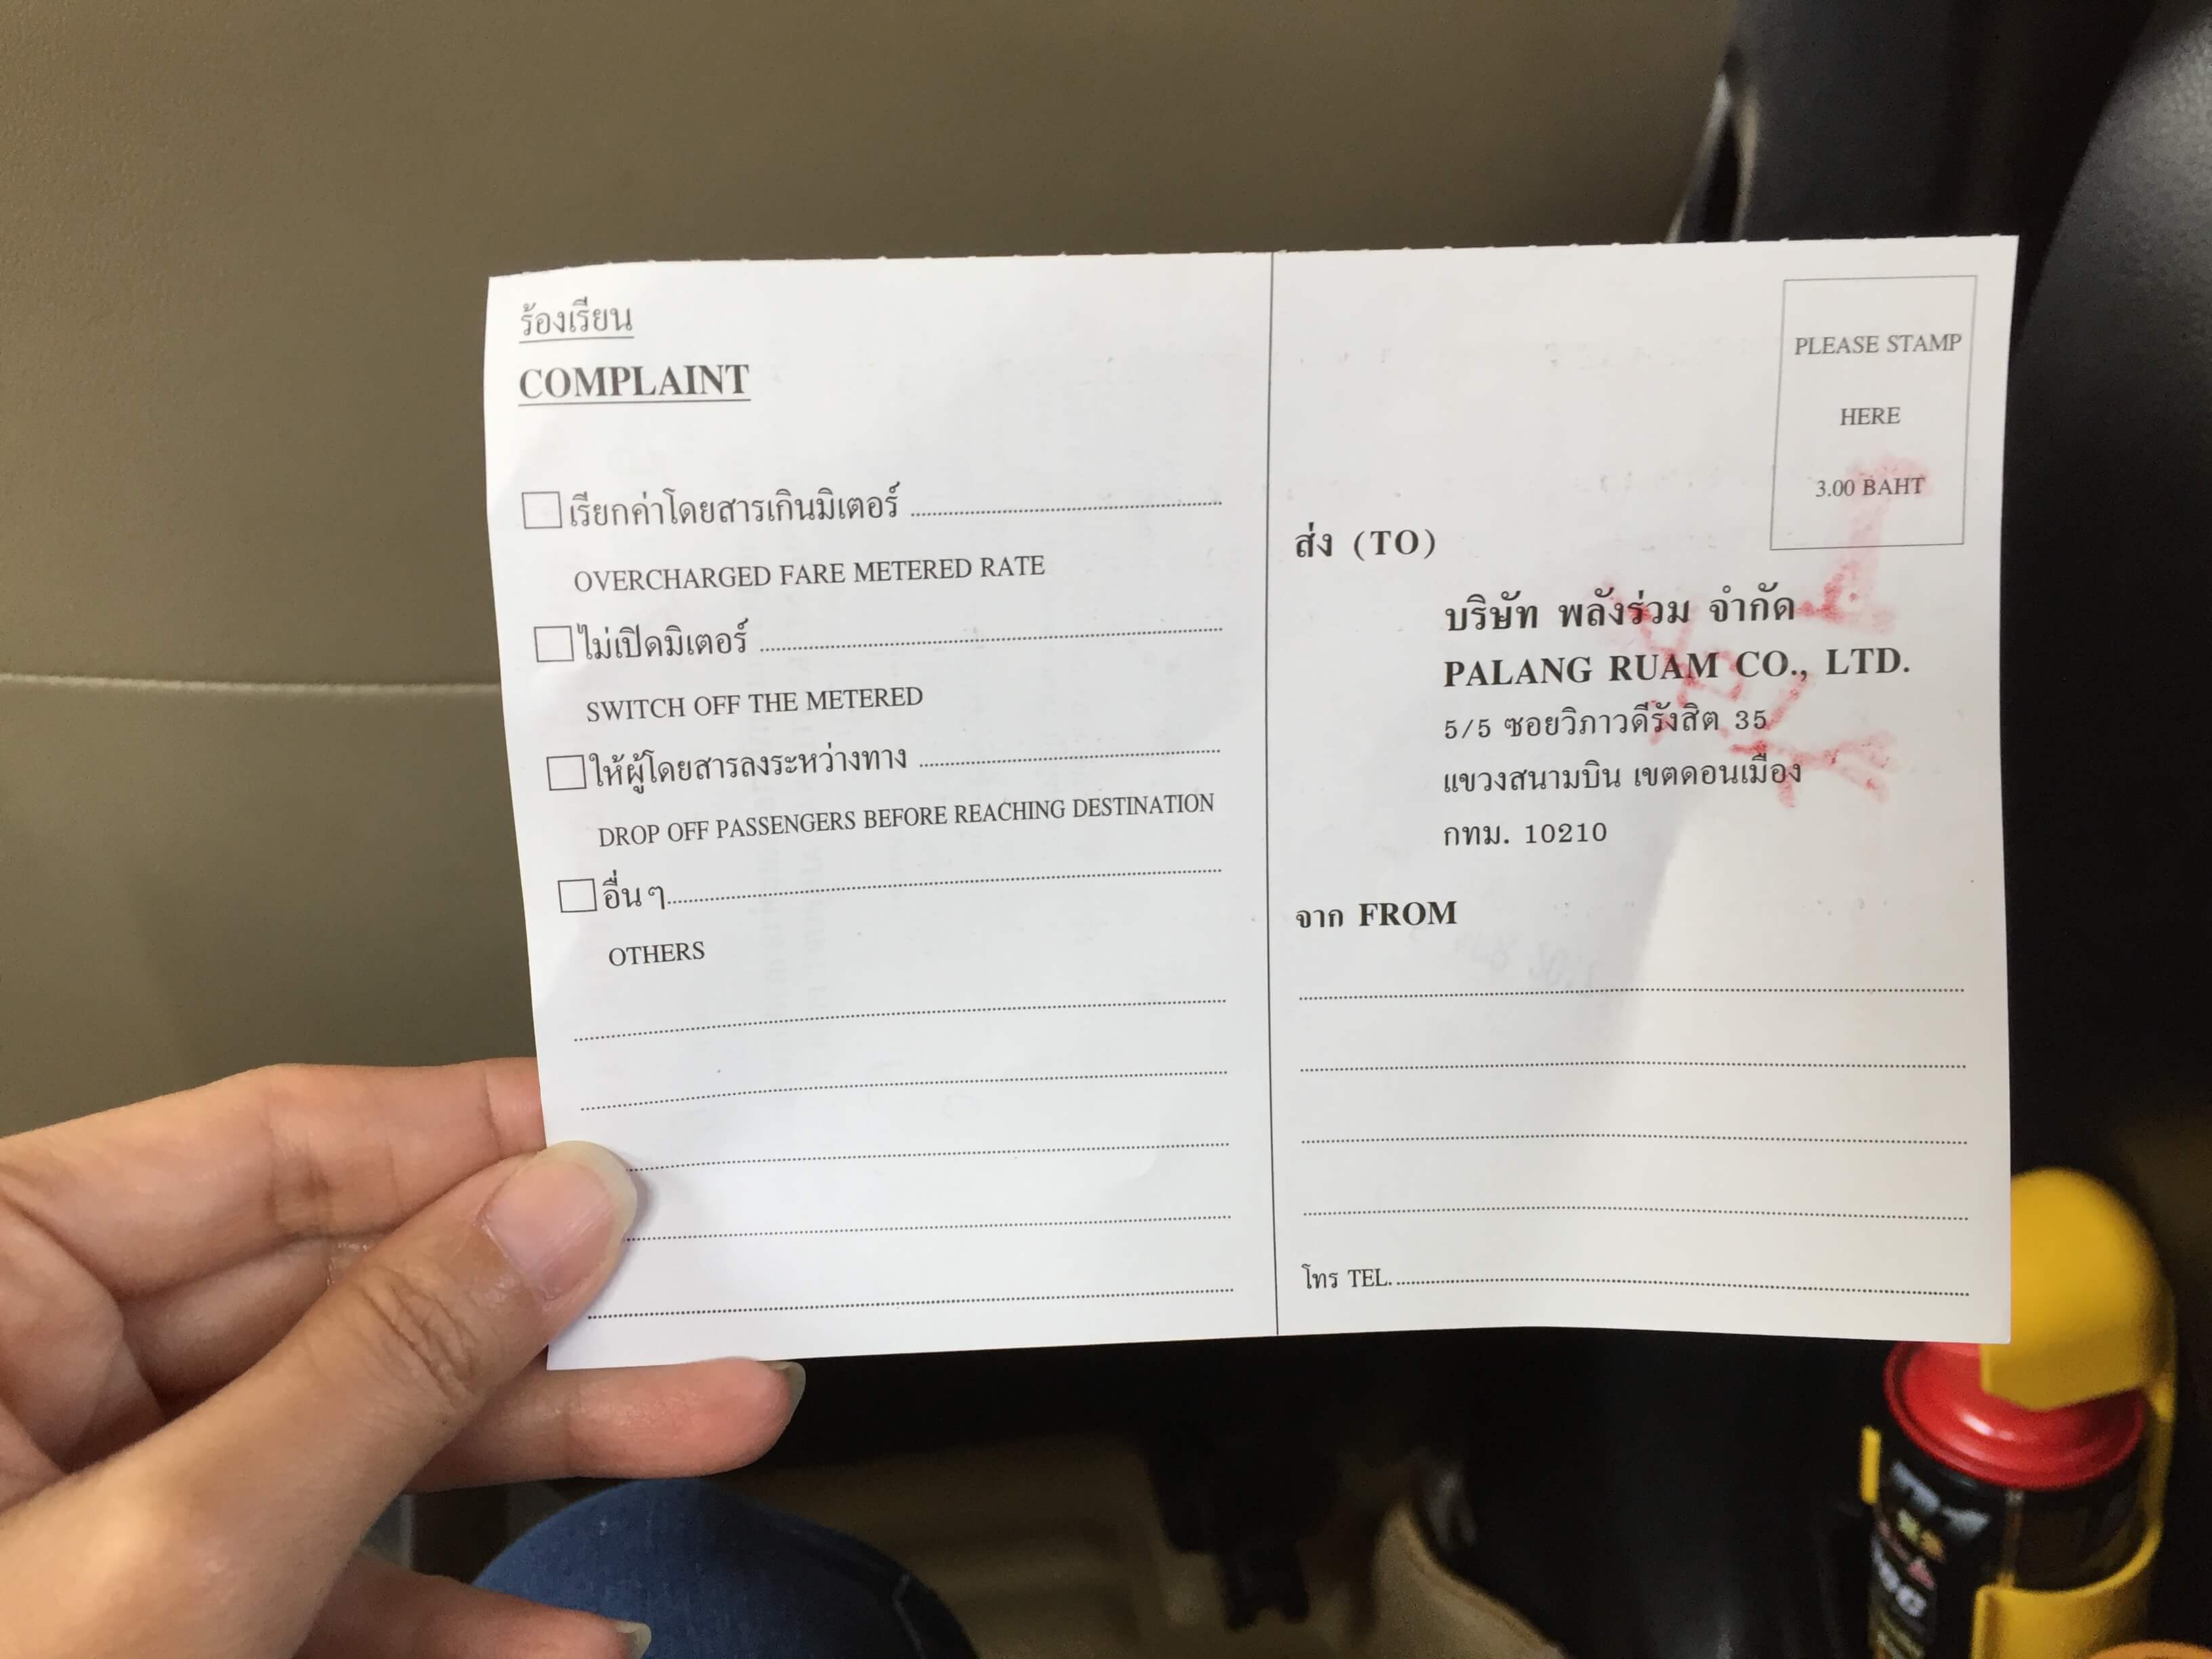 ร้องเรียน
COMPLAINT
เรียกค่าโดยสารเกินมิเตอร์
OVERCHARGED FARE METERED RATE
ไม่เปิดมิเตอร์
SWITCH OFF THE METERED
ให้ผู้โดยสารลงระหว่างทาง
DROP OFF PASSENGERS BEFORE REACHING DESTINATION
อื่นๆ
OTHERS
PLEASE STAMP
HERE
3.00 BAHT
ส่ง (TO)
บริษัท พลังร่วม จำกัด
PALANG RUAM CO., LTD.
5/5 ซอยวิภาวดีรังสิต 35
แขวงสนามบิน เขตดอนเมือง
กทม. 10210
จาก FROM
โทร TEL.